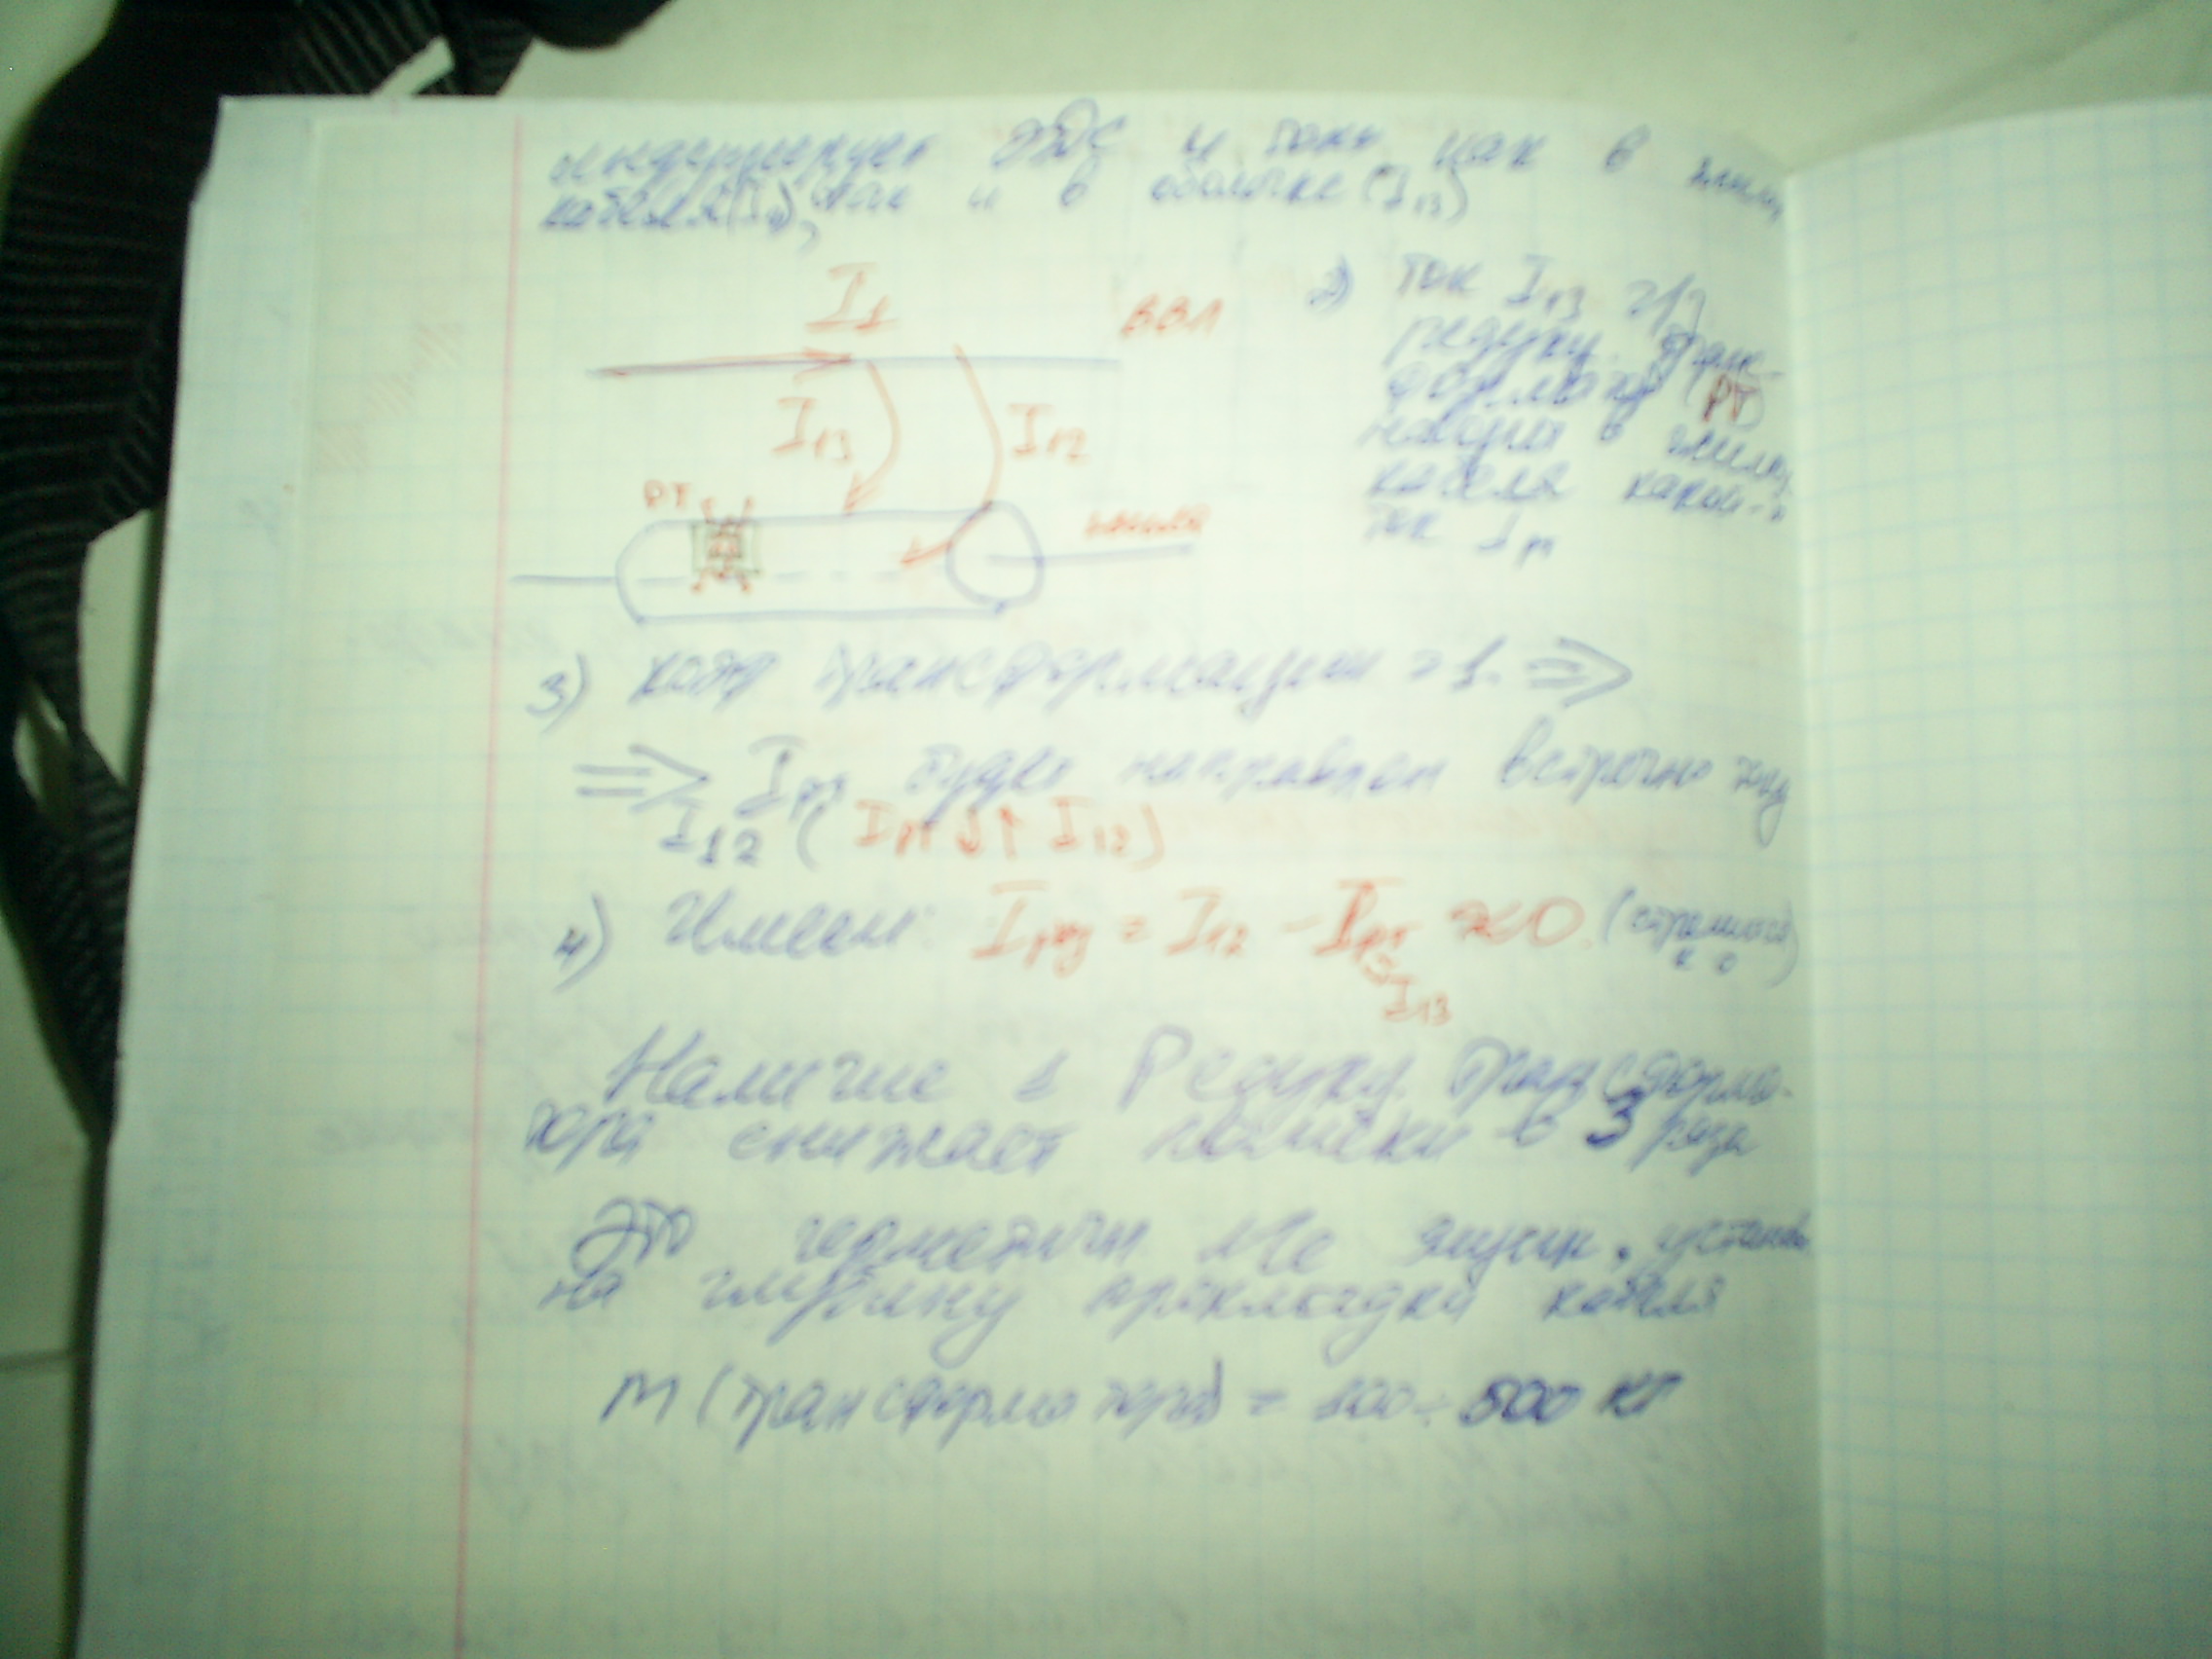 индуцирует ЭДС и токи как в жилах
кабеля (I12), так и в оболочке (I13)
I1
ВВЛ
I13
I12
РТ
2) ток I13 ч/з
редукц. транс-
форматор (РТ)
наводит в жилах
кабеля какой-то
ток Iрт
3) коэф трансформации = 1. =>
=> Iрт будет направлен встречно току
I12 (Iрт ↓↑ I12)
4) Имеем: Iрез = I12 - Iрт ≈ 0. (стремится
к 0
I13
Наличие 1 Редукц. трансформа-
тора снижает помехи в 3 раза
Это герметичн ящик, установ
на глубину прокладки кабеля
m (трансформатора) = 100 ÷ 500 кг